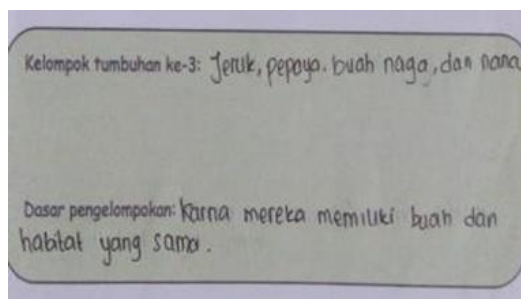 Kelompok tumbuhan ke-3: Jeruk, pepaya. buah naga, dan nana
Dasar pengelompokan: Karna mereka memiliki buah dan
habitat yang sama.